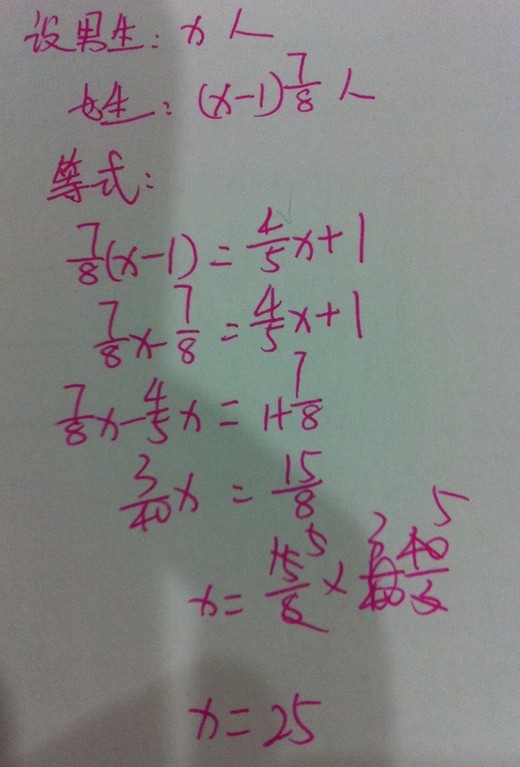 设男生：x人
女生：(x-1)7/8人
等式：
7/8(x-1)=4/5x+1
7/8x-7/8=4/5x+1
7/8x-4/5x=1+7/8
3/40x=15/8
x=15/8×40/3
x=25